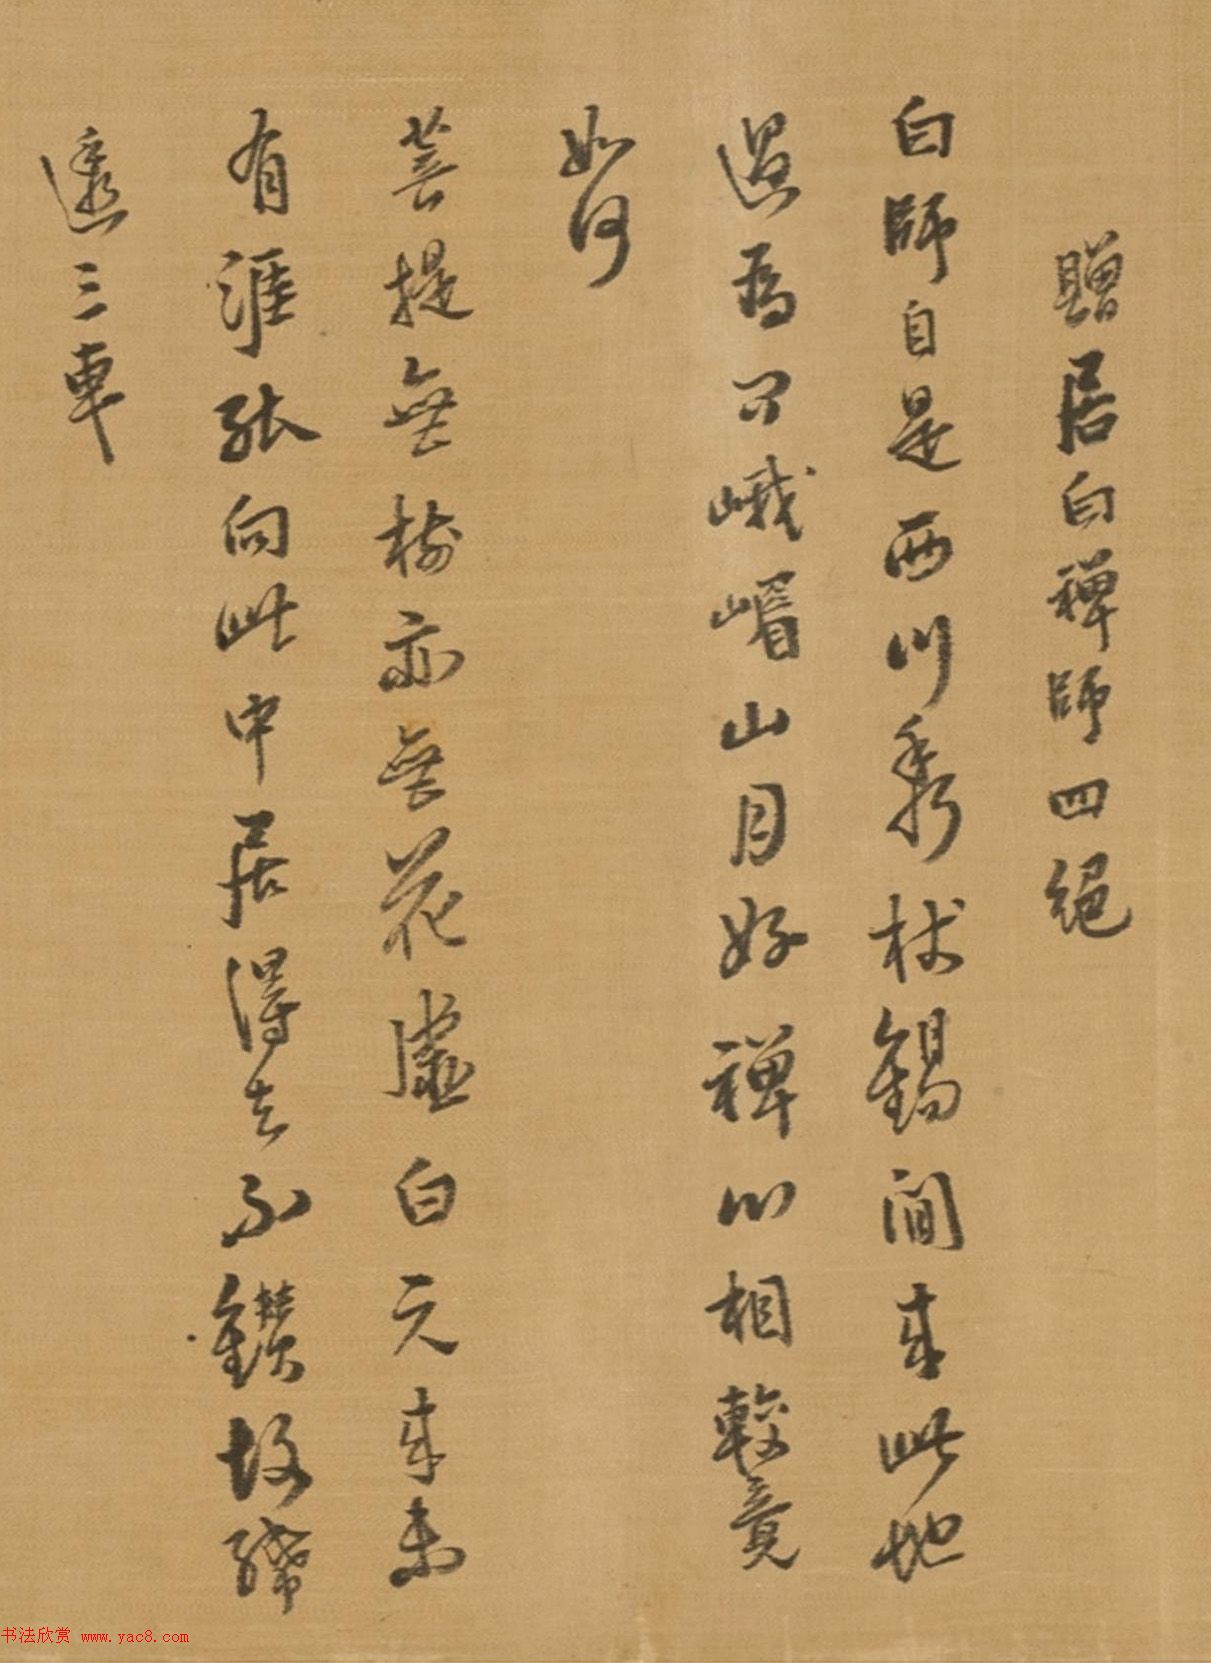 贈居白禪師四絕
白師自是西川秀杖錫閒来此地
過為问峨嵋山月好禪心相較竟
如何
菩提無樹亦無花虛白元来未
有涯能向此中居得去不鑽故紙
三車
书法欣赏 www.yac8.com